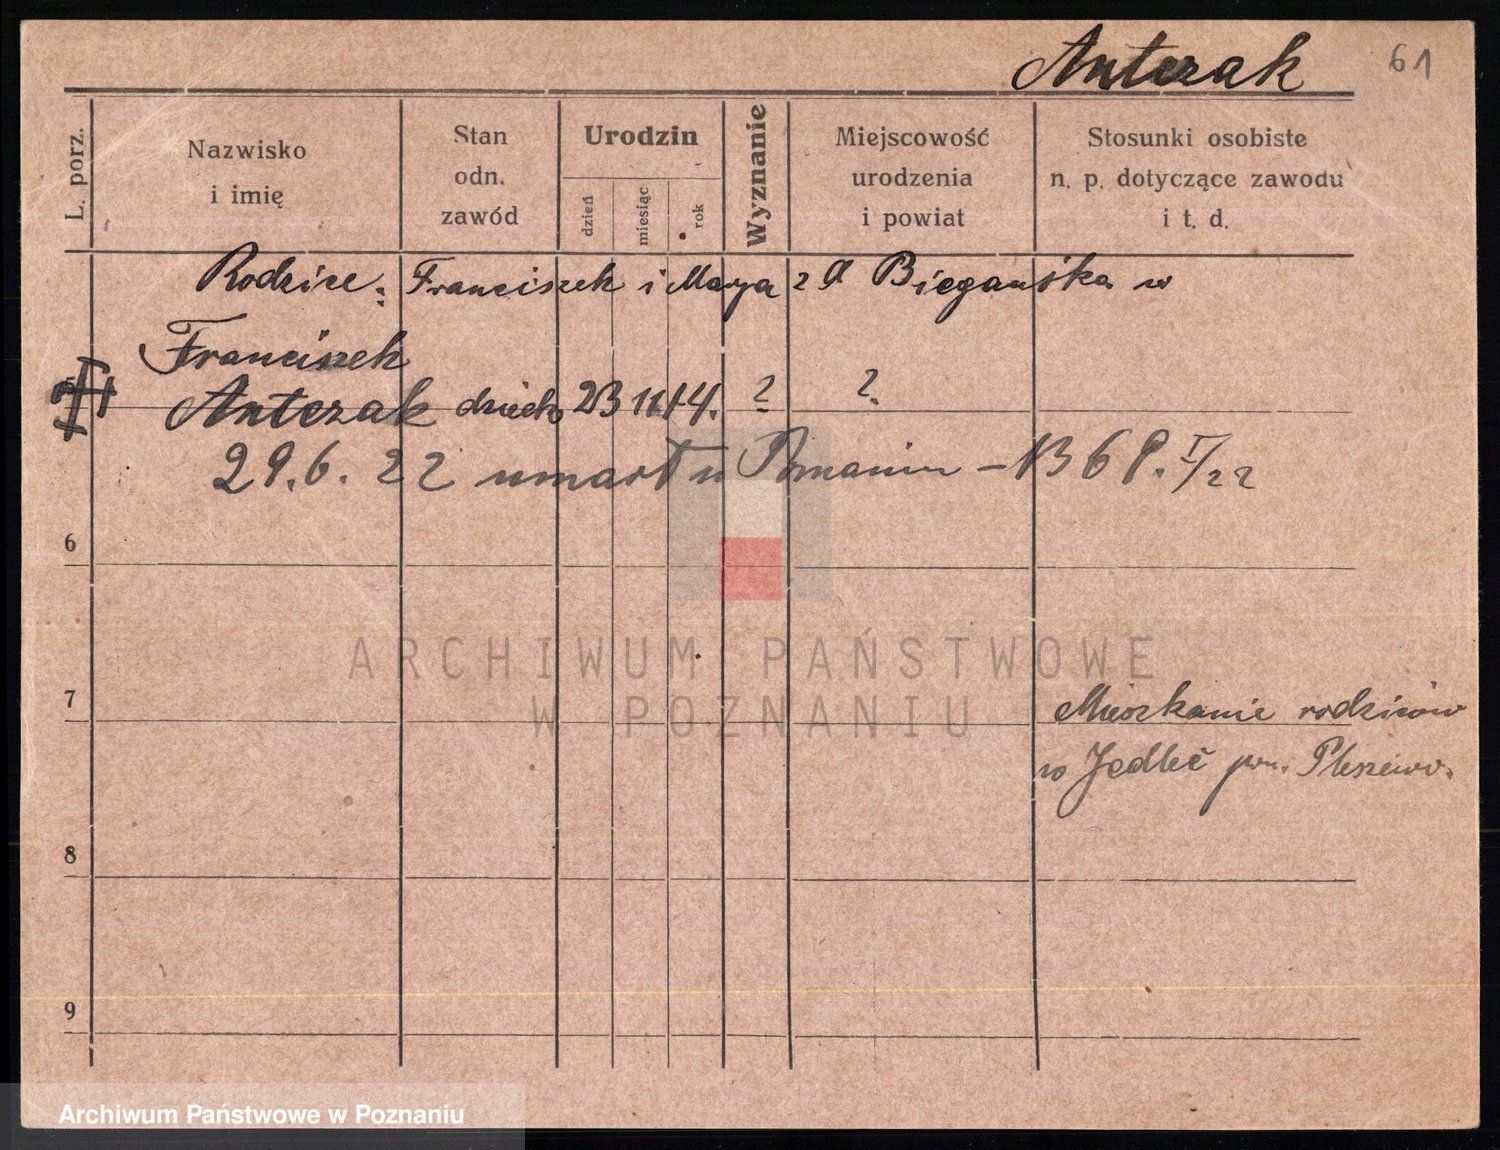 Antczak 61
L. porz.
Nazwisko
i imię
Stan
odn.
zawód
Urodzin
dzień
miesiąc
rok
Wyznanie
Miejscowość
urodzenia
i powiat
Stosunki osobiste
n. p. dotyczące zawodu
i t. d.
Rodzice: Franciszek i Marya z d Biegańska w
Franciszek
Antczak dziecko 23 11 14. ? ?
29.6.22 umarł w Poznaniu – 1368. I/22
6
7
Mieszkanie rodziców
w Jedleč pow. Pleszew.
8
9
ARCHIWUM PAŃSTWOWE
W POZNANIU
Archiwum Państwowe w Poznaniu